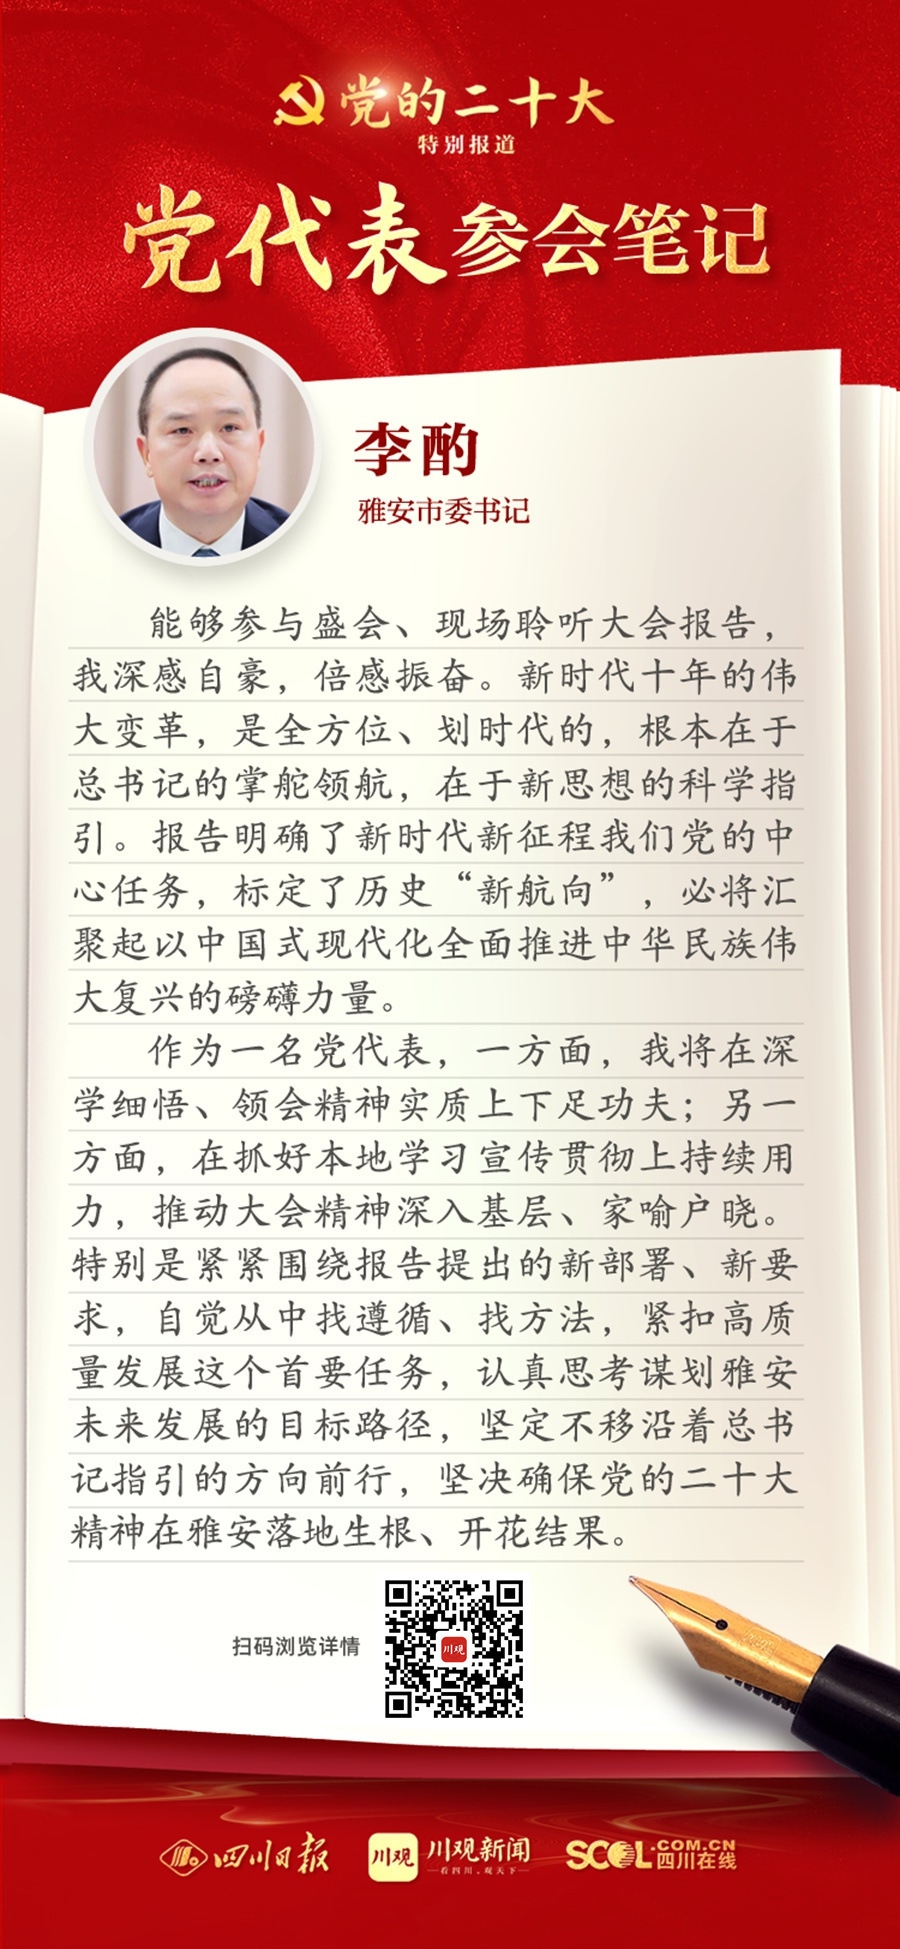 党的二十大
特别报道
党代表参会笔记
李酌
雅安市委书记
能够参与盛会、现场聆听大会报告，
我深感自豪，倍感振奋。新时代十年的伟
大变革，是全方位、划时代的，根本在于
总书记的掌舵领航，在于新思想的科学指
引。报告明确了新时代新征程我们党的中
心任务，标定了历史“新航向”，必将汇
聚起以中国式现代化全面推进中华民族伟
大复兴的磅礴力量。
作为一名党代表，一方面，我将在深
学细悟、领会精神实质上下足功夫；另一
方面，在抓好本地学习宣传贯彻上持续用
力，推动大会精神深入基层、家喻户晓。
特别是紧紧围绕报告提出的新部署、新要
求，自觉从中找遵循、找方法，紧扣高质
量发展这个首要任务，认真思考谋划雅安
未来发展的目标路径，坚定不移沿着总书
记指引的方向前行，坚决确保党的二十大
精神在雅安落地生根、开花结果。
扫码浏览详情
川观
四川日报
川观
川观新闻
看四川，观天下
SCOL.COM.CN
四川在线